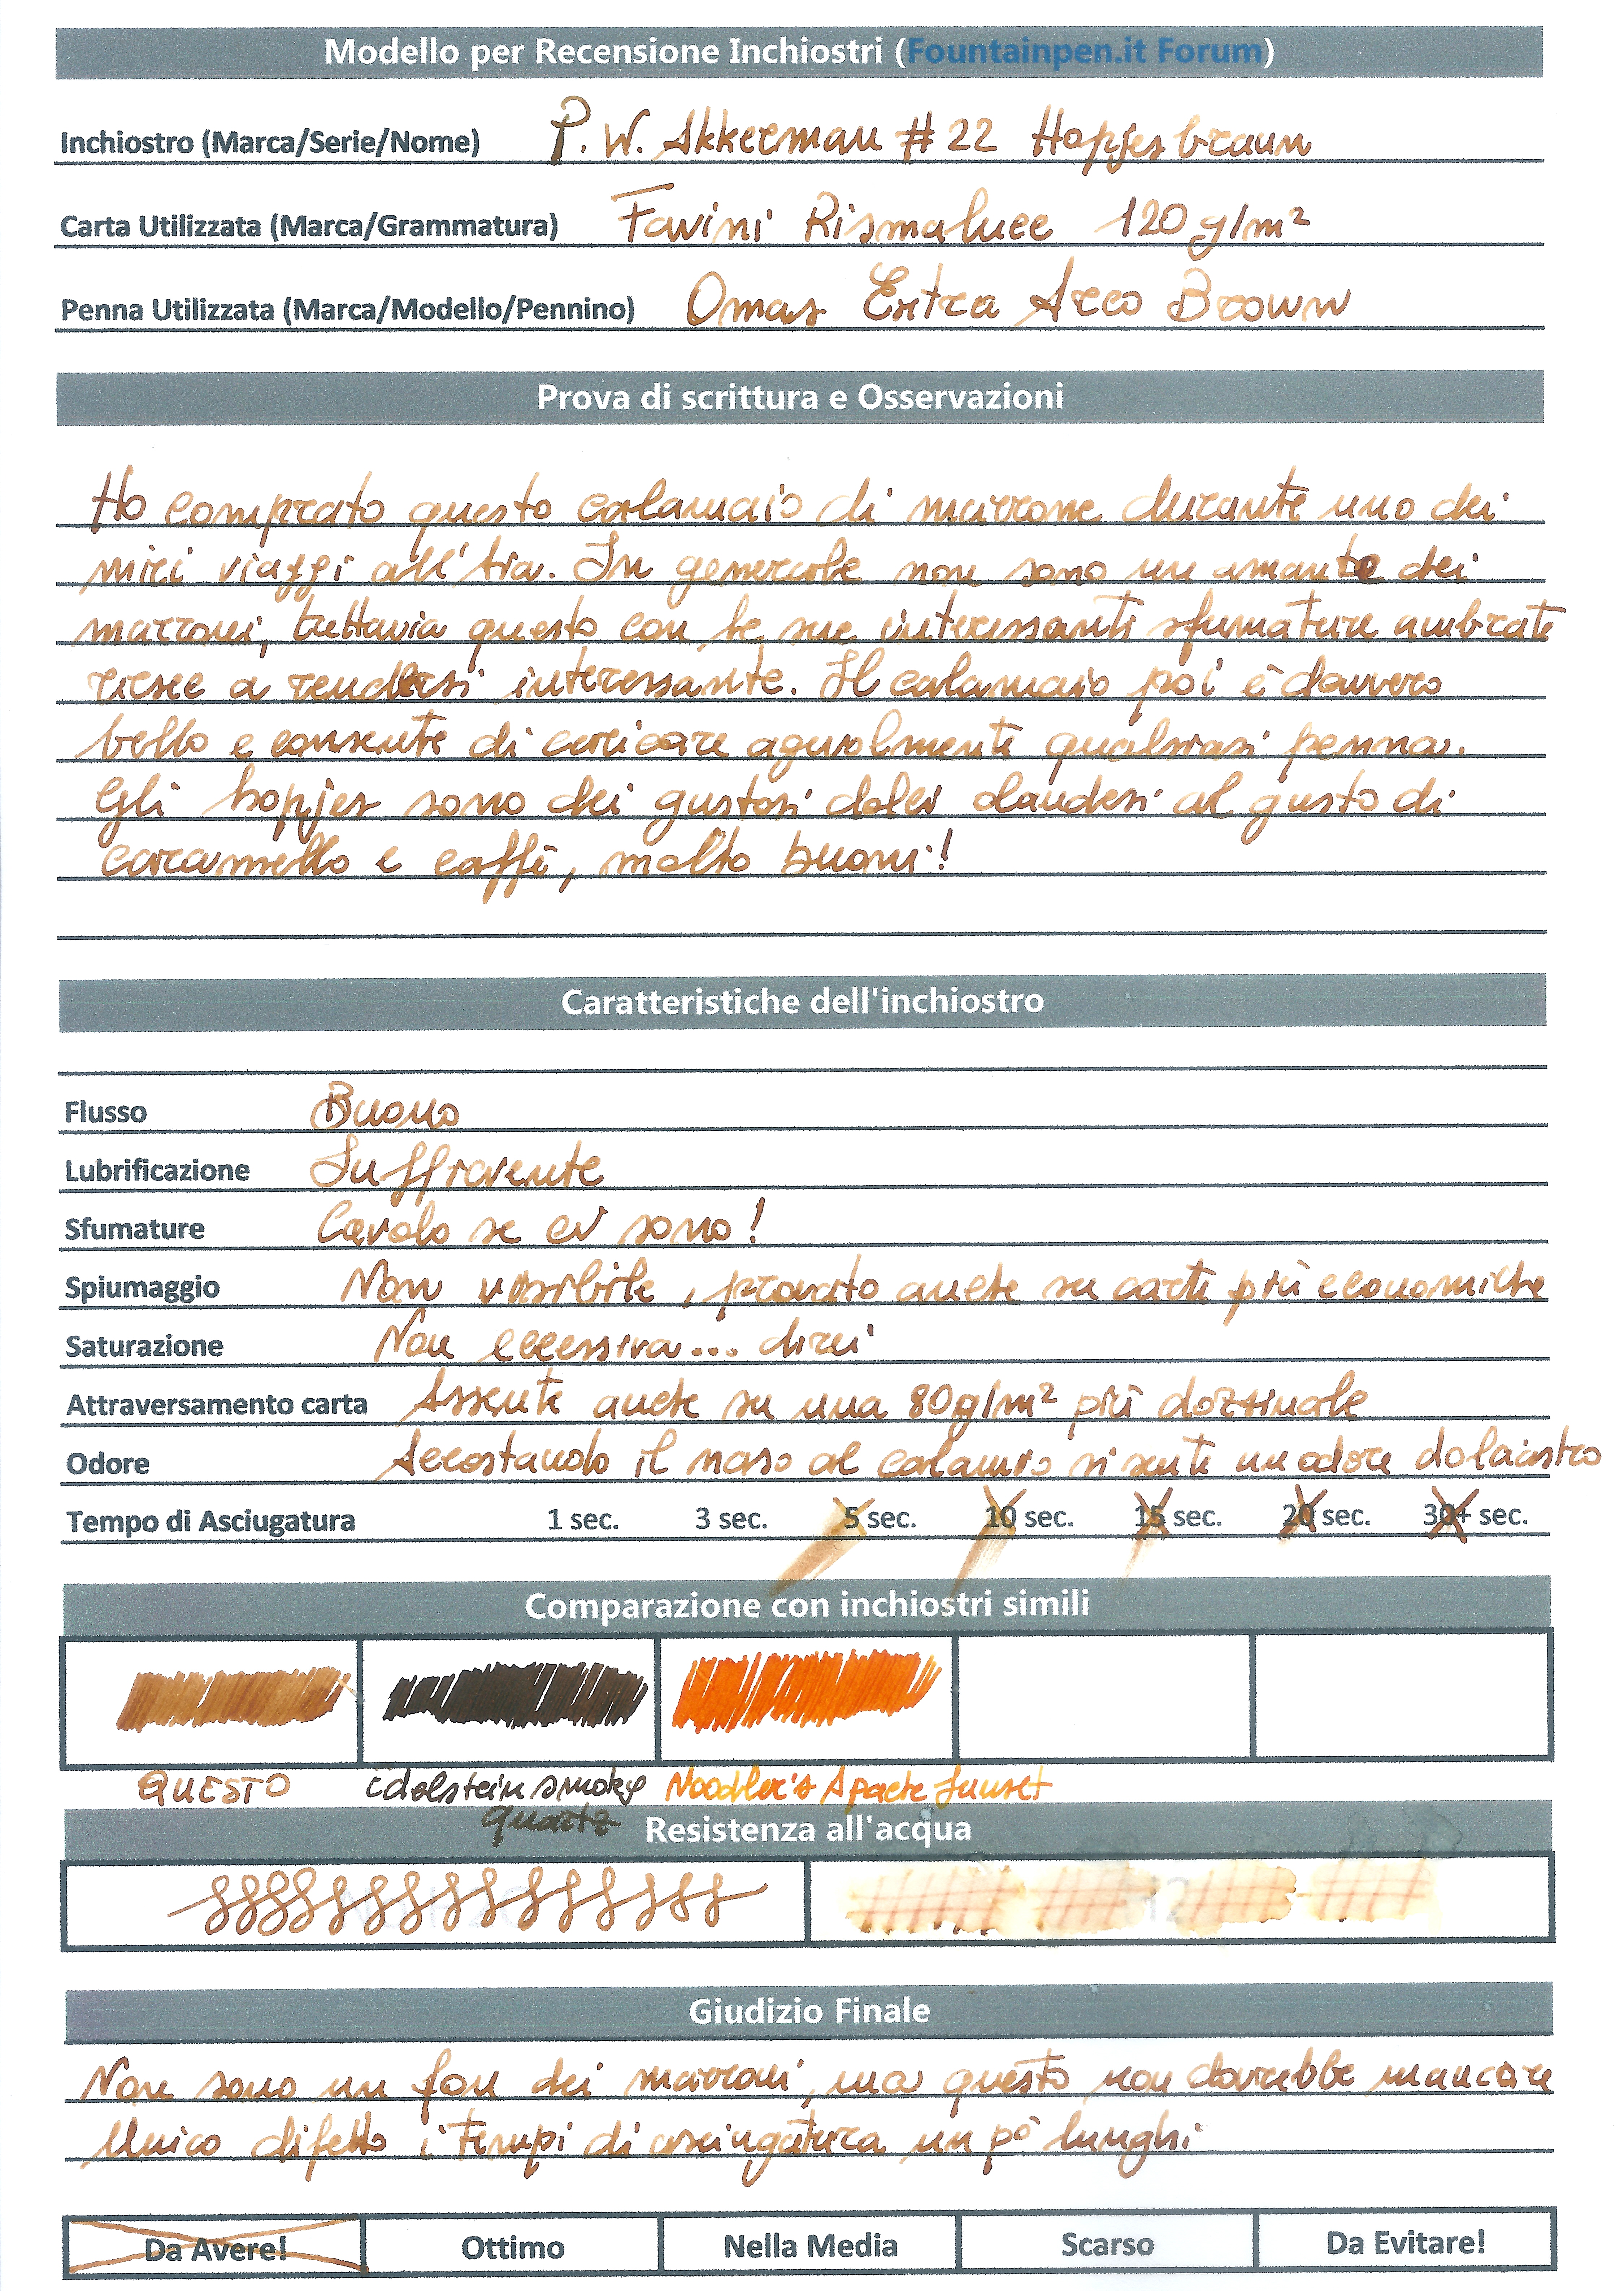 Modello per Recensione Inchiostri (Fountainpen.it Forum)
Inchiostro (Marca/Serie/Nome) P. W. Akkerman # 22 Hopjesbraun
Carta Utilizzata (Marca/Grammatura) Favini Rismaluce 120 g/m²
Penna Utilizzata (Marca/Modello/Pennino) Omas Extra Arco Brown
Prova di scrittura e Osservazioni
Ho comprato questo calamaio di marrone durante uno dei
miei viaggi all'Aia. In generale non sono un amante dei
marroni, tuttavia questo con le sue interessanti sfumature ambrate
riesce a rendersi interessante. Il calamaio poi è davvero
bello e consente di caricare agevolmente qualsiasi penna.
Gli hopjes sono dei gustosi dolci olandesi al gusto di
caramello e caffè, molto buoni!
Caratteristiche dell'inchiostro
Flusso Buono
Lubrificazione Sufficiente
Sfumature Cavolo se ci sono!
Spiumaggio Non visibile, provato anche su carte più economiche
Saturazione Non eccessiva... direi
Attraversamento carta Assente anche su una 80g/m² più dozzinale
Odore Accostando il naso al calamaio si sente un odore dolciastro
Tempo di Asciugatura 1 sec. 3 sec. 5 sec. 10 sec. 15 sec. 20 sec. 30+ sec.
Comparazione con inchiostri simili
QUESTO Edelstein smoky quartz Noodler's Apache Sunset
Resistenza all'acqua
Giudizio Finale
Non sono un fan dei marroni, ma questo non dovrebbe mancare
Unico difetto i tempi di asciugatura un pò lunghi
Da Avere! Ottimo Nella Media Scarso Da Evitare!